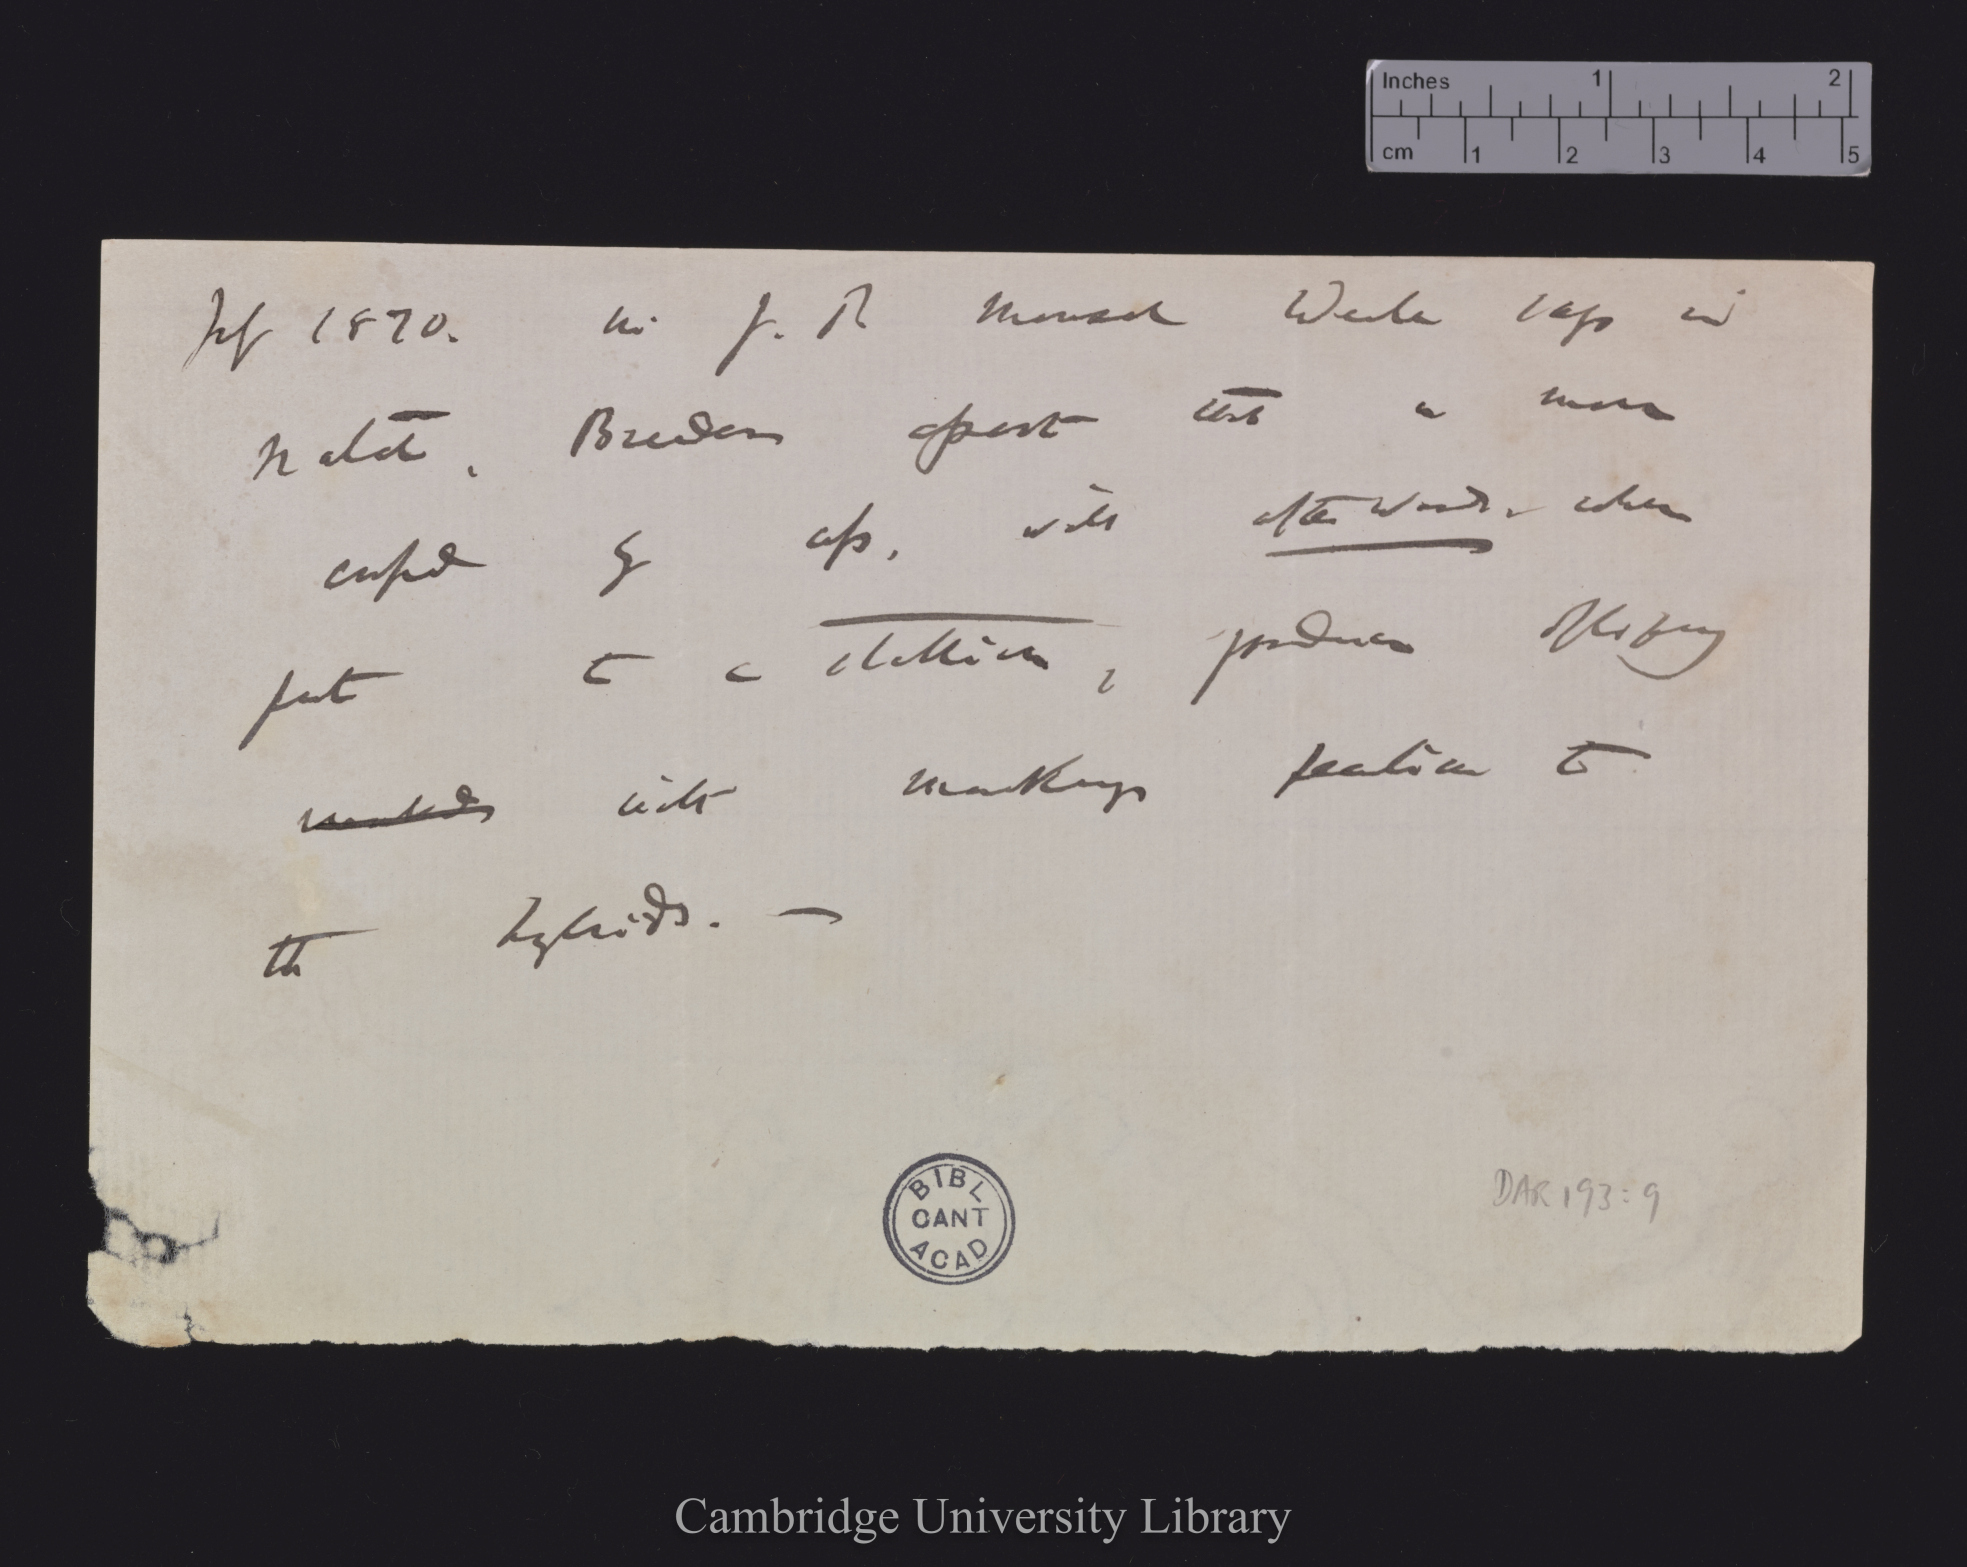 Inches 1 2
cm 1 2 3 4 5
1870. Mr J. R Weale says in
Natal, Breeders assert that a mare
coupled by ass, will afterwards, when
put to a stallion, produce offspring
marked with markings peculiar to
the hybrids. —
BIBL
CANT
ACAD
DAR 193:9
Cambridge University Library